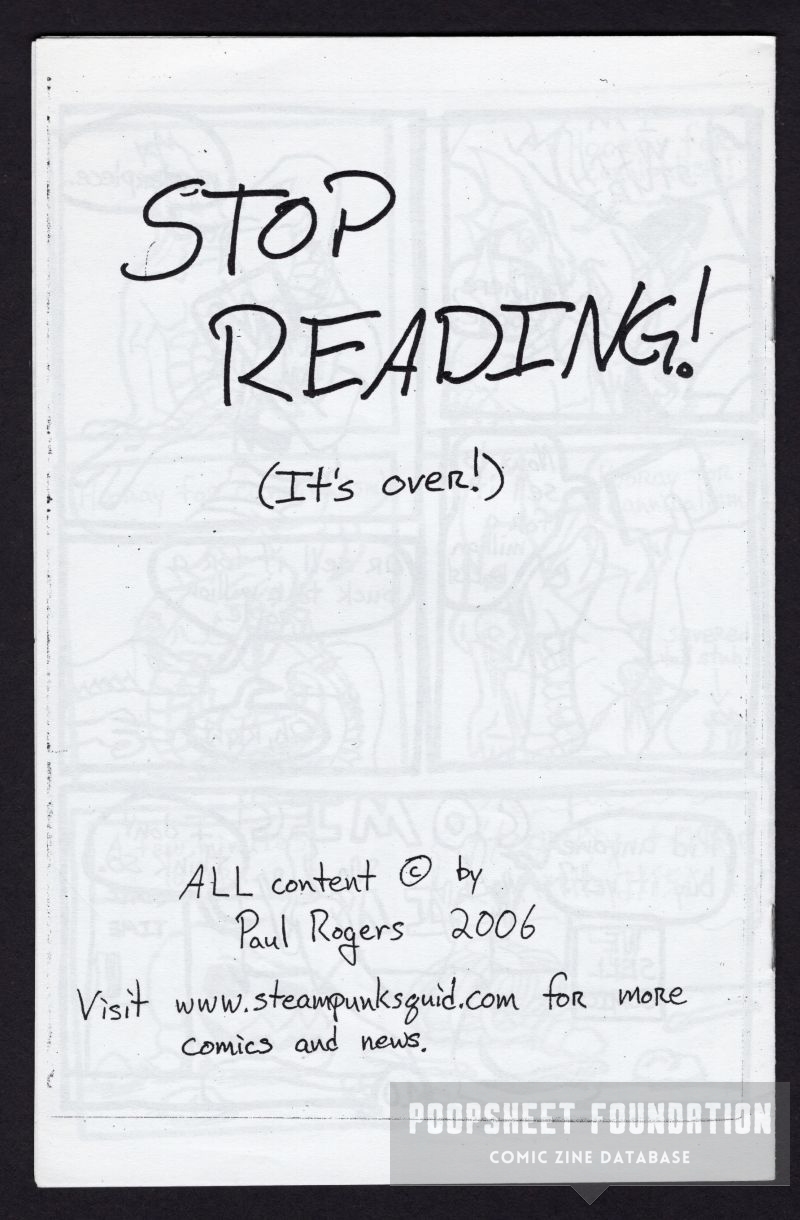 STOP
READING!
(It's over!)
ALL content © by
Paul Rogers 2006
Visit www.steampunksquid.com for more
comics and news.
POOPSHEET FOUNDATION
COMIC ZINE DATABASE